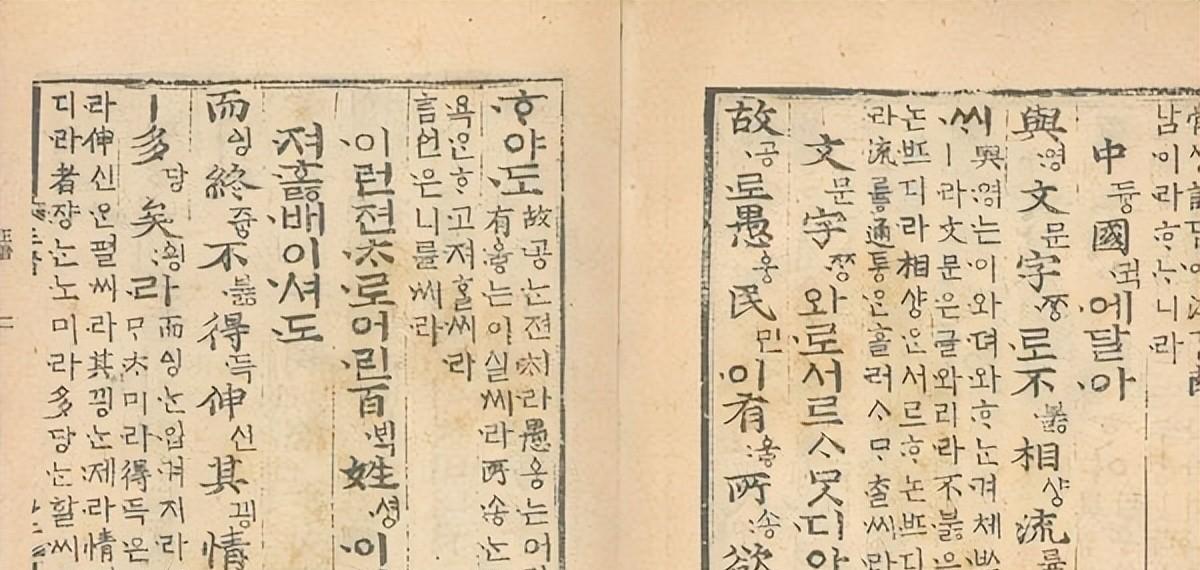 남이라ᄒᆞᄂᆞ니라
中듀ᇰ國귁에달아
與영文문字ᄍᆞᆼ로不부ᇙ相샤ᇰ流
씨與영는이와뎌와ᄒᆞᄂᆞᆫ겨체ᄡᅳ
ㅣ라文문은글와리라不부ᇙ은
논ᄠᅳ디라相샤ᇰᄋᆞᆫ서르ᄒᆞ논ᄠᅳ디
라流류ᇢ通토ᇰᄋᆞᆫ흘러ᄉᆞᄆᆞᄎᆞᆯ씨라
文문字ᄍᆞᆼ와로서르ᄉᆞᄆᆞᆺ디아
故공로愚ᅌᅮᆼ民민이有ᅌᅮᇢ所송欲
ᄒᆞ야도故공ᄂᆞᆫ젼ᄎᆡ라愚ᅌᅮᆼ는어
有ᅌᅮᇢ는이실씨라所송ᄂᆞᆫ
욕ᄋᆞᆫᄒᆞ고져ᄒᆞᆯ씨라
言언은니를씨라
이런젼ᄎᆞ로어린百ᄇᆡᆨ姓셔ᇰ이
져ᄒᆞᇙ배이셔도
而ᅀᅵᆼ終쥬ᇰ不부ᇙ得득伸신其끵情
ㅣ多당矣ᅌᅴᆼ라而ᅀᅵᆼᄂᆞᆫ입겨지라
ᄆᆞᄎᆞ미라得득은
라伸신ᄋᆞᆫ펼씨라其끵ᄂᆞᆫ제라情
디라者쟝ᄂᆞᆫ노미라多당ᄂᆞᆫ할씨